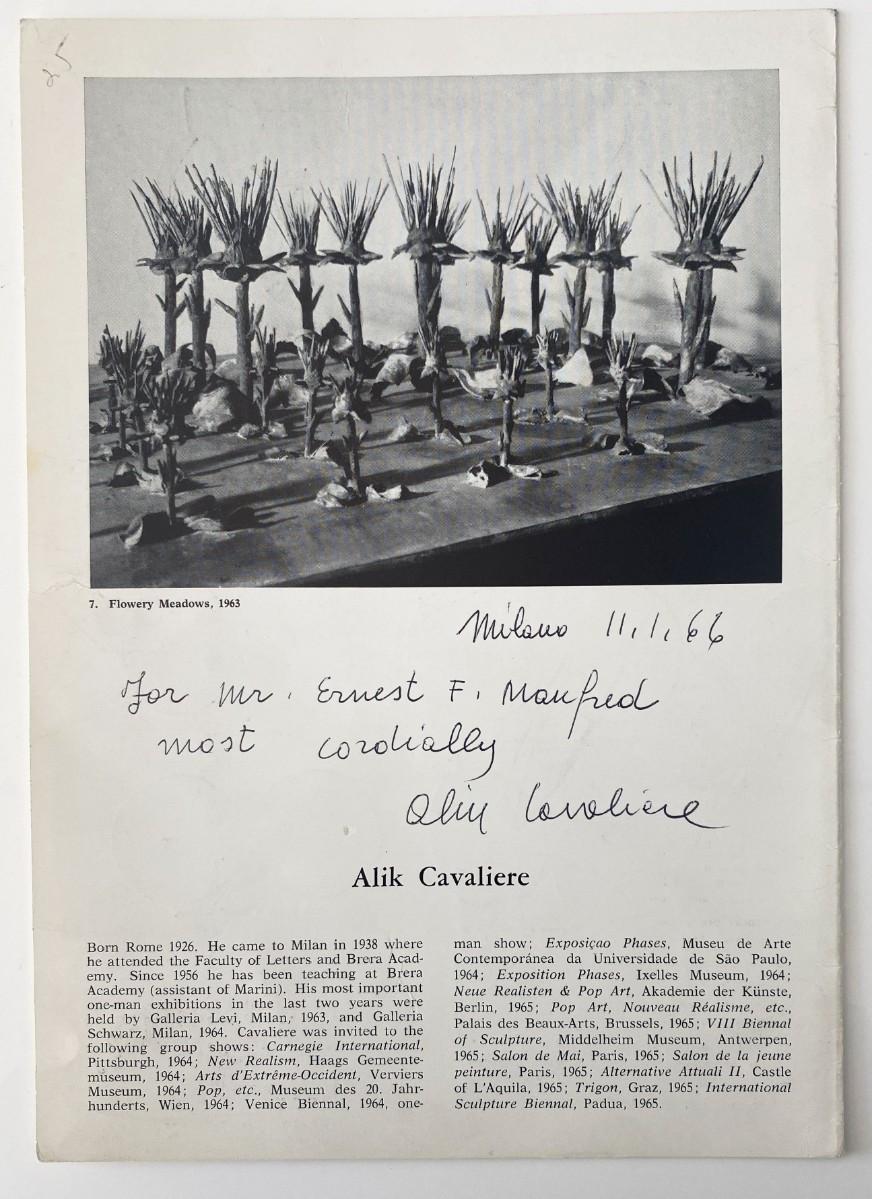 25
7. Flowery Meadows, 1963
Milano 11.1.66
For Mr. Ernest F. Manfred
most cordially
Alik Cavaliere
Alik Cavaliere
Born Rome 1926. He came to Milan in 1938 where
he attended the Faculty of Letters and Brera Acad-
emy. Since 1956 he has been teaching at Brera
Academy (assistant of Marini). His most important
one-man exhibitions in the last two years were
held by Galleria Levi, Milan, 1963, and Galleria
Schwarz, Milan, 1964. Cavaliere was invited to the
following group shows: Carnegie International,
Pittsburgh, 1964; New Realism, Haags Gemeente-
museum, 1964; Arts d'Extrême-Occident, Verviers
Museum, 1964; Pop, etc., Museum des 20. Jahr-
hunderts, Wien, 1964; Venice Biennal, 1964, one-
man show; Exposiçao Phases, Museu de Arte
Contemporánea da Universidade de São Paulo,
1964; Exposition Phases, Ixelles Museum, 1964;
Neue Realisten & Pop Art, Akademie der Künste,
Berlin, 1965; Pop Art, Nouveau Réalisme, etc.,
Palais des Beaux-Arts, Brussels, 1965; VIII Biennal
of Sculpture, Middelheim Museum, Antwerpen,
1965; Salon de Mai, Paris, 1965; Salon de la jeune
peinture, Paris, 1965; Alternative Attuali II, Castle
of L'Aquila, 1965; Trigon, Graz, 1965; International
Sculpture Biennal, Padua, 1965.